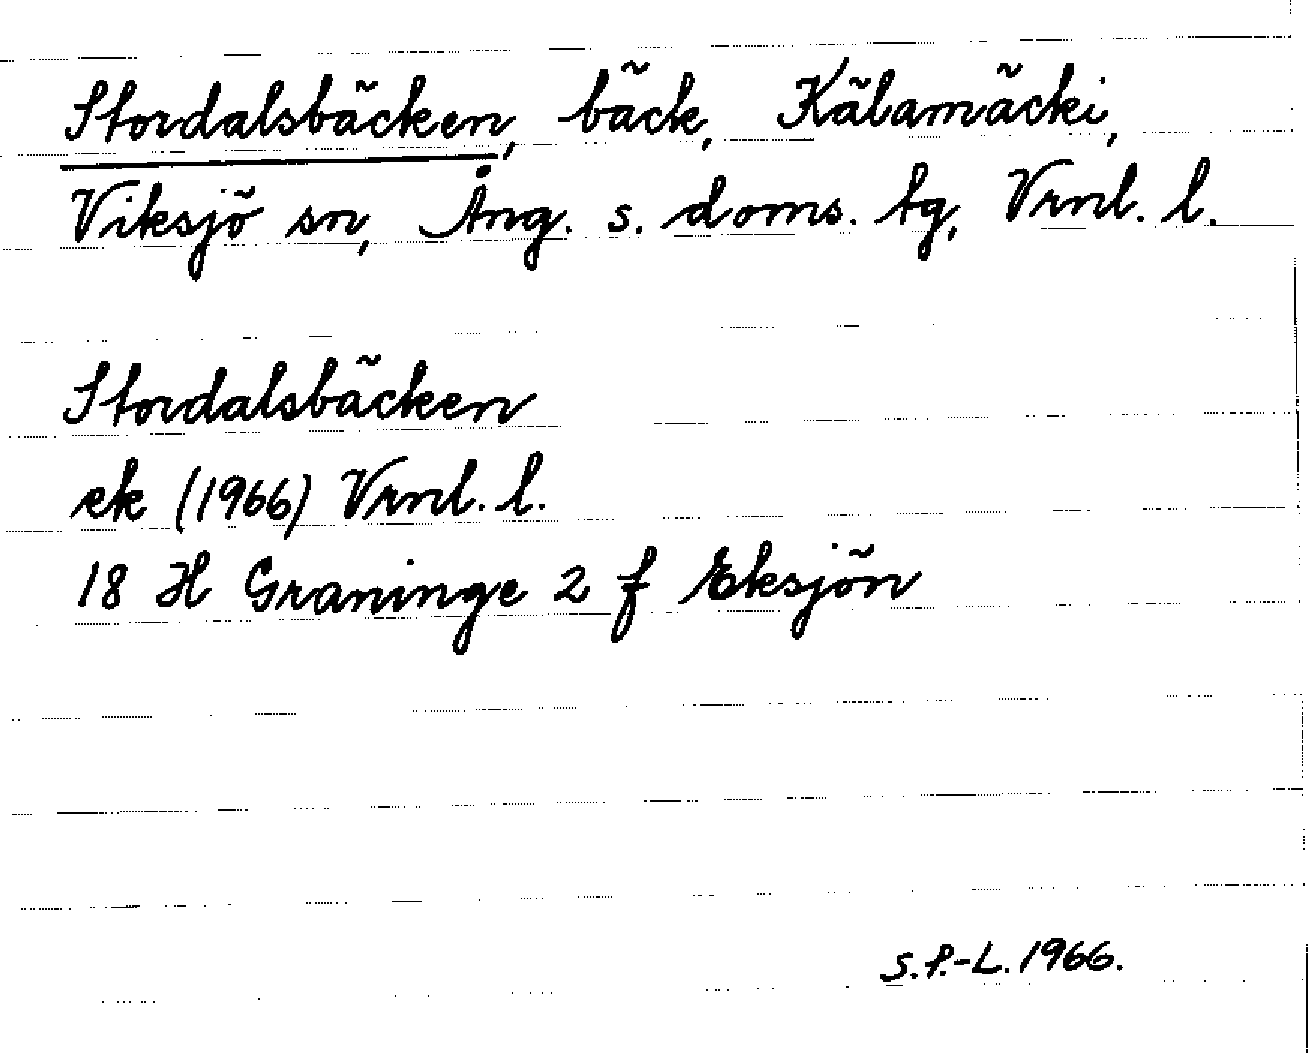 Stordalsbäcken, bäck, Källamäcki,
Viksjö sn, Ång. s. doms. tg, Vrnl. l.
Stordalsbäcken
ek (1966) Vrnl. l.
18 H Graninge 2 f Eksjön
S.P.-L. 1966.